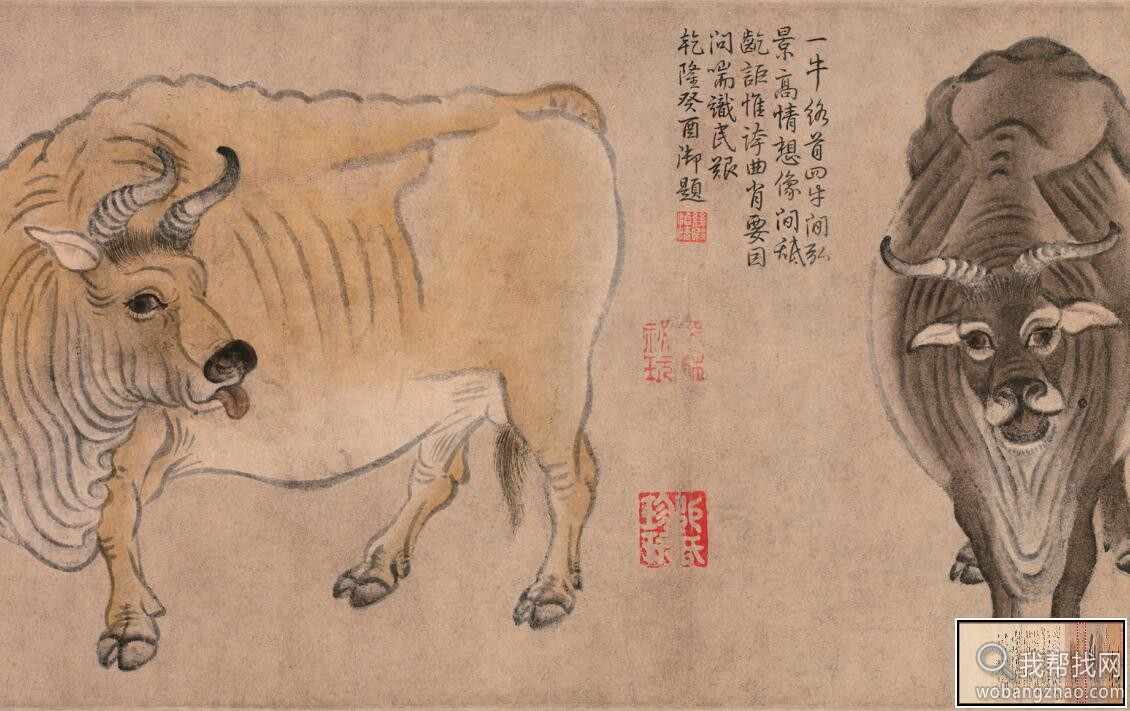 一牛絡首四牛間弘
景高情想像間舐
齕詎惟誇曲肖要因
問喘識民艱
乾隆癸酉御題
我帮找网
wobangzhao.com